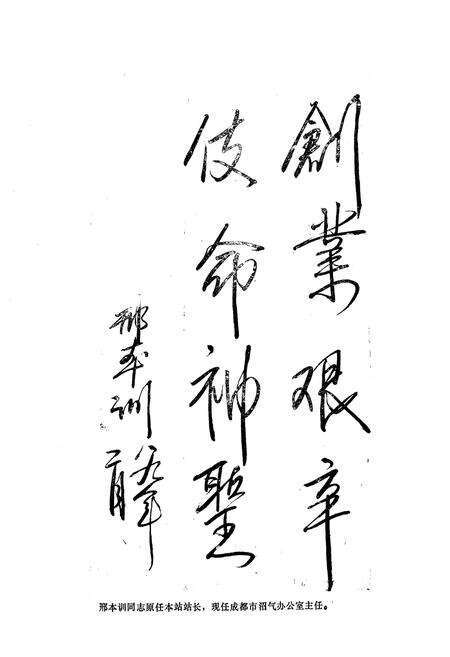 創業艰辛
使命神聖
邢本训
八九年
二月
邢本训同志原任本站站长，现任成都市沼气办公室主任。